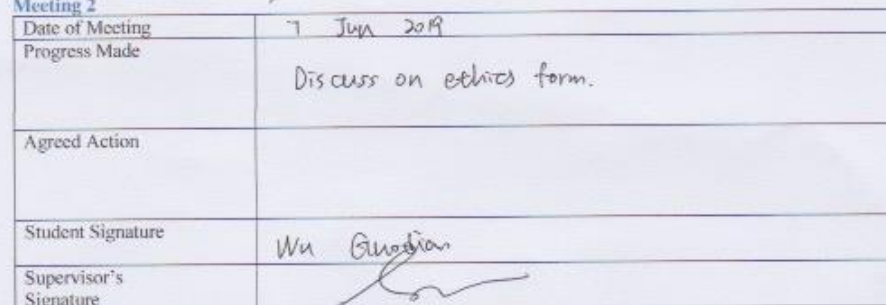 Meeting 2
Date of Meeting 7 Jun 2019
Progress Made
Discuss on ethics form.
Agreed Action
Student Signature
Wu
Supervisor's
Signature